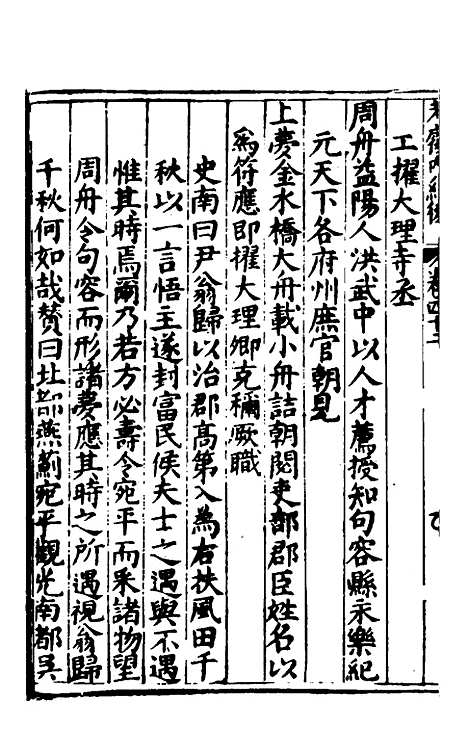 工擢大理寺丞
周舟益陽人洪武中以人才薦授知句容縣永樂紀
元天下各府州庶官朝見
上夢金水橋大舟載小舟詰朝閱吏部郡臣姓名以
為符應即擢大理卿克稱厥職
史南曰尹翁歸以治郡高第入為右扶風田千
秋以一言悟主遂封富民侯夫士之遇與不遇
惟其時焉爾乃若方必壽令宛平而采諸物望
周舟令句容而形諸夢應其時之所遇視翁歸
千秋何如哉贊曰北部燕薊宛平觀光南都吳